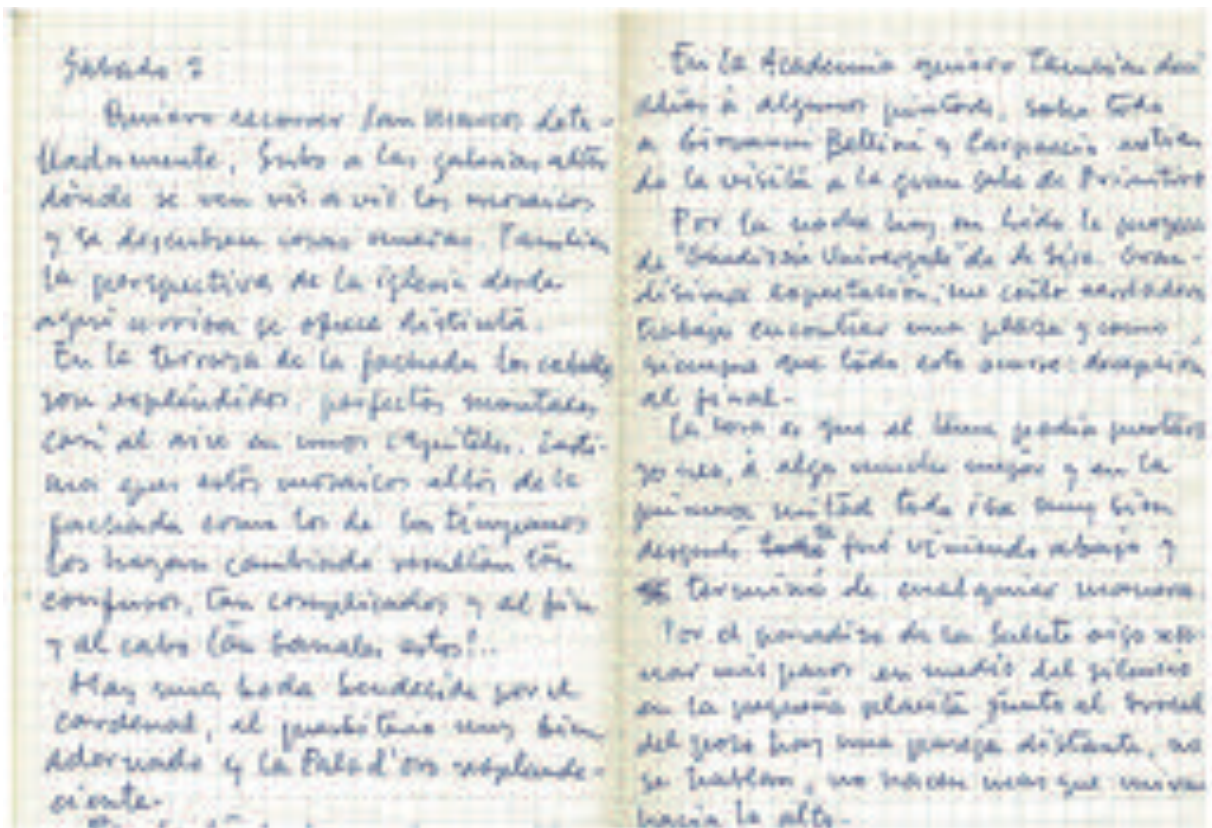 Sabado 2
Quiero recorrer San Marcos deta-
lladamente. Subo a las galerias altas
donde se ven vis a vis los mosaicos
y se descubren cosas nuevas. Tambien
la perspectiva de la iglesia desde
aqui arriba se ofrece distinta.
En la terraza de la fachada los caballos
son espléndidos, perfectos montados
casi al aire en unos capiteles. Lasti-
ma que estos mosaicos altos de la
fachada como los de los timpanos
los hayan cambiado resultan tan
confusos, tan complicados y al fin
y al cabo tan banales estos!..
Hay una boda bendecida por el
cardenal, el presbiterio muy bien
adornado y la Pala d'oro resplande-
ciente.
En la Academia quiero tambien decir
adios à algunos pintores, sobre todo
a Giovanni Bellini y Carpaccio
de la visita a la gran sala de Primitivos
Por la noche hoy en Lido le
de "Giudizio Universale" de de Sica. Gran-
disima expectacion, me costo verdadero
trabajo encontrar una plaza y como
siempre que todo esto ocurre: decepcion
al final.
La cosa es que el tema podia
à algo mucho mejor y en la
primera mitad todo iba muy bien
después fué viniendo abajo y
terminó de cualquier manera.
Por el de la Salute oigo reso-
nar mis pasos en medio del silencio
en la pequeña placita junto al brocal
del pozo hay una pareja distante, no
se hablan, no hacen mas que mirar
hacia lo alto.